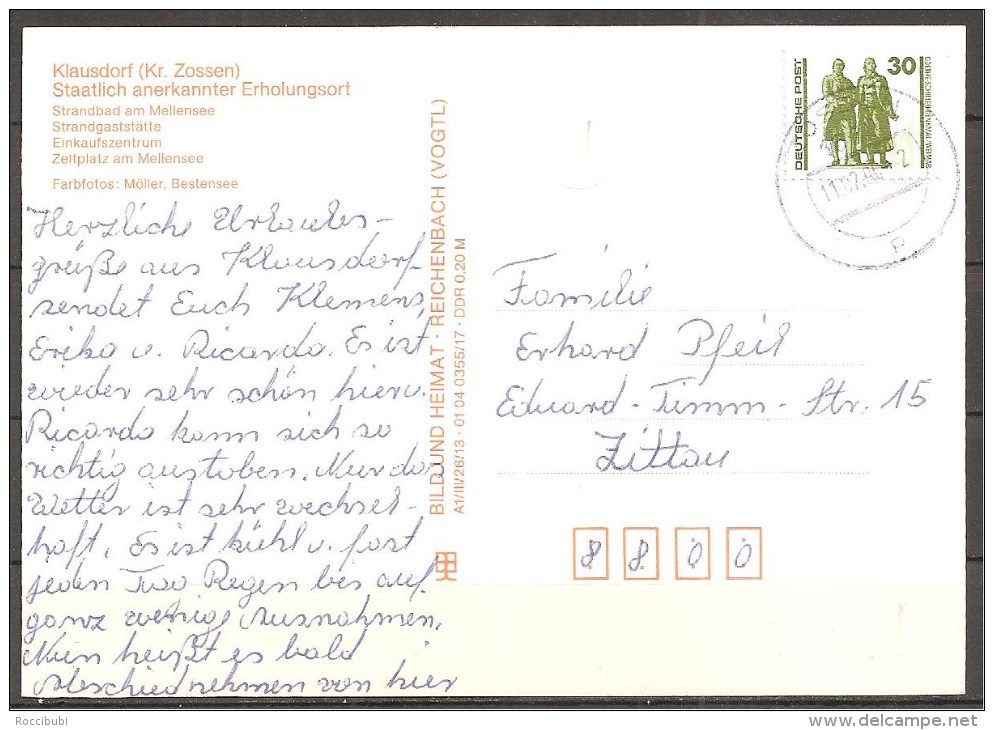 Klausdorf (Kr. Zossen)
Staatlich anerkannter Erholungsort
Strandbad am Mellensee
Strandgaststätte
Einkaufszentrum
Zeltplatz am Mellensee
Farbfotos: Möller, Bestensee
Herzliche Urlaubs-
grüße aus Klausdorf
sendet Euch Klemens,
Erika u. Ricardo. Es ist
wieder sehr schön hier u.
Ricardo kann sich so
richtig austoben. Nur das
Wetter ist sehr wechsel-
haft. Es ist kühl u. fast
jeden Tag Regen bis auf
ganz wenige Ausnahmen.
Nun heißt es bald
Abschied nehmen von hier
BILD UND HEIMAT · REICHENBACH (VOGTL)
A1/III/26/13 · 01 04 0355/17 · DDR 0,20 M
DEUTSCHE POST
30
GOETHE-SCHILLER-DENKMAL · WEIMAR
Familie
Erhard Pfeil
Eduard-Timm-Str. 15
Zittau
8 8 0 0
Roccibubi
www.delcampe.net